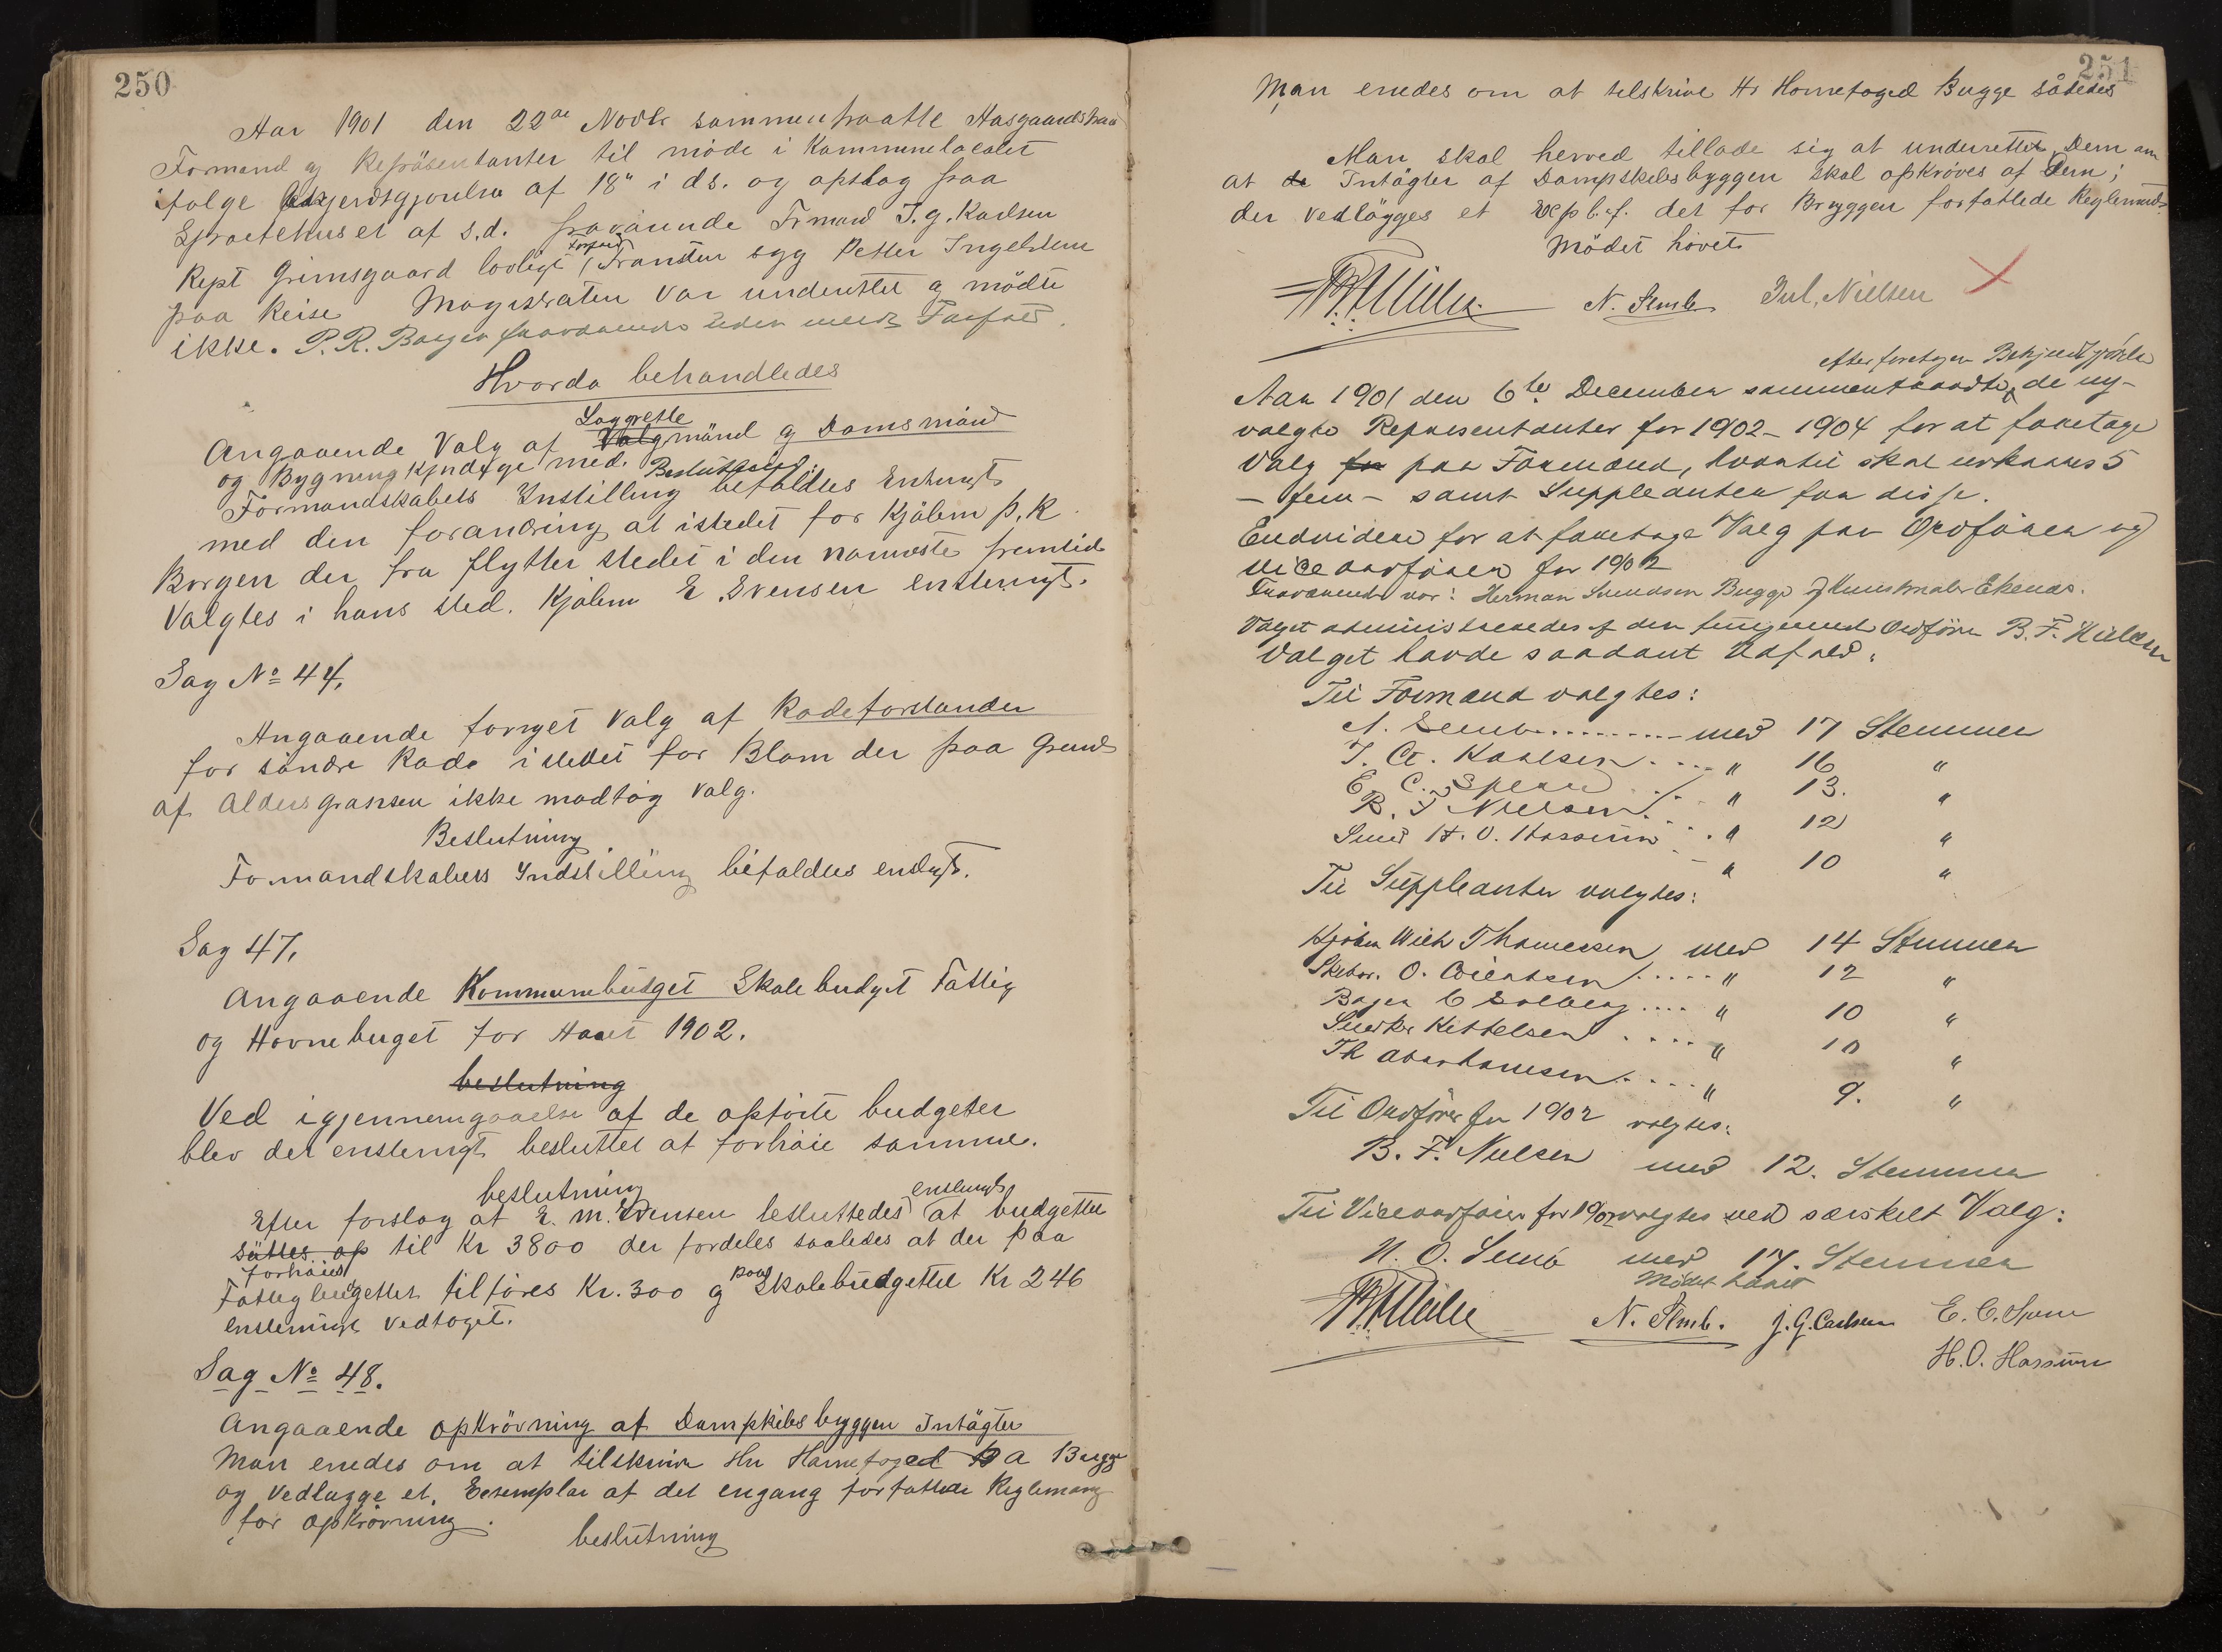 250
Aar 1901 den 22de Novbr sammentraatte Aasgaardstran
Formand og Repräsentanter til möde i Kommunelocalet
ifölge Bekjendtgjörelse af 18" i ds. og opslag paa
Spröitehuset af s.d. fraværende Frmand J. G. Karlsen
Rept Grimsgaard lovligt Forfald syg Petter Ingebretsen
paa Reise Magistraten var underettet og mödte
ikke. P. R. Borgen fraværende uden meldt Forfald.
Hvorda behandledes
Lagrette
Angaaende Valg af Valgmänd og Domsmänd
og Bygningskyndige med. Beslutning:
Formandskabets Instilling bifaldtes Enstemigt
med den forandring at istedet for Kjöbm P. R.
Borgen der fra flytter stedet i den nærmeste fremtid
Valgtes i hans sted. Kjöbm E Evensen enstemigt.
Sag No 44.
Angaaende fornyet Valg af Rodeforstander
for söndre Rode istedet for Blom der paa Grund
af Aldersgrænsen ikke modtog valg.
Beslutning
Formandskabets Indstilling bifaldtes enstgt.
Sag 47.
Angaaende Kommunebudget Skolebudget Fattig
og Havnebuget for Aaret 1902.
beslutning
Ved igjennemgaaelse af de opförte budgeter
blev det enstemigt besluttet at forhöie samme.
beslutning
enstemigt
Efter forslag af E. M. Evensen besluttedes at budgettet
sättes op til Kr 3800 der fordeles saaledes at der paa
forhöies
Fattigbudgettet tilföres Kr. 300 og paa Skolebudgettet Kr 246
enstemigt vedtaget.
Sag No 48.
Angaaende opkrövning af Dampskibsbryggen Intägter
Man enedes om at tilskrive Hr Havnefoged A Bugge
og vedlægge et Exemplar af det engang forfattede Reglemang
for opkrövning.
beslutning
251
Man enedes om at tilskrive Hr Havnefoged Bugge således
Man skal herved tillade sig at underrette Dem om
at de Intägter af Dampskibsbryggen skal opkröves af Dem;
der vedlägges et det for Bryggen forfattede Reglement.
Mödet hövet
N. Semb Jul. Nielsen
efter foretagen Bekjendtgjörelse
Aar 1901 den 6te December sammentraadte de ny-
valgte Representanter for 1902-1904 for at foretage
Valg for paa Formænd, hvortil skal udkaares 5
- fem - samt Suppleanter for disse.
Endvidere for at foretage Valg paa Ordförer og
viceordförer for 1902
Fraværende var: Herman Bugge og Kunstmaler Ekenæs.
Valget administreredes af den fungerende Ordförer B. F. Nielsen
Valget havde saadant Udfald:
Til Formænd valgtes:
N. Semb .......... med 17 Stemmer
J. G. Karlsen .... " 16 "
E. C. .... " 13. "
B. F Nielsen .... " 12 "
Smed H. O. Hassum .. " 10 "
Til Suppleanter valgtes:
Kjöbm Wilh Thomessen med 14 Stemmer
Skibsr. O. ..... " 12 "
Bager C Solberg .... " 10 "
Kittelsen ..... " 10 "
Th Abrahamsen .... " 9. "
Til Ordförer for 1902 valgtes:
B. F. Nielsen med 12. Stemmer
Til Viceordförer for 1902 valgtes ved særskilt Valg:
N. O. Semb med 17. Stemmer
Mödet hævet
N. Semb. J. G. Carlsen E. C.
H. O. Hassum